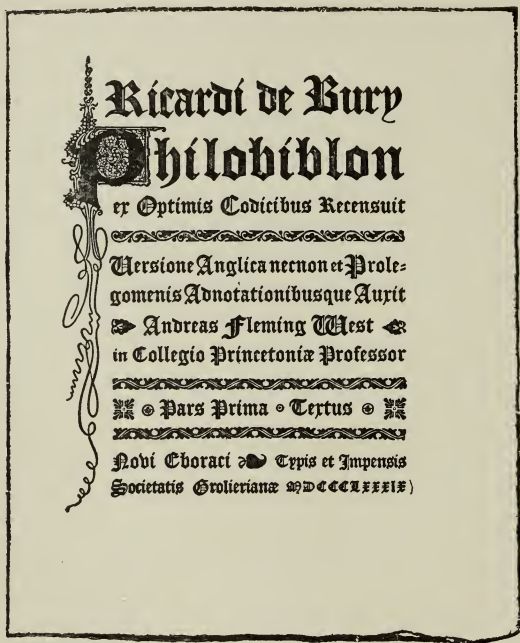 Ricardi de Bury
Philobiblon
ex Optimis Codicibus Recensuit
Versione Anglica necnon et Prole=
gomenis Adnotationibusque Auxit
Andreas Fleming West
in Collegio Princetoniæ Professor
Pars Prima • Textus
Novi Eboraci Typis et Impensis
Societatis Grolierianæ MDCCCLXXXIX)